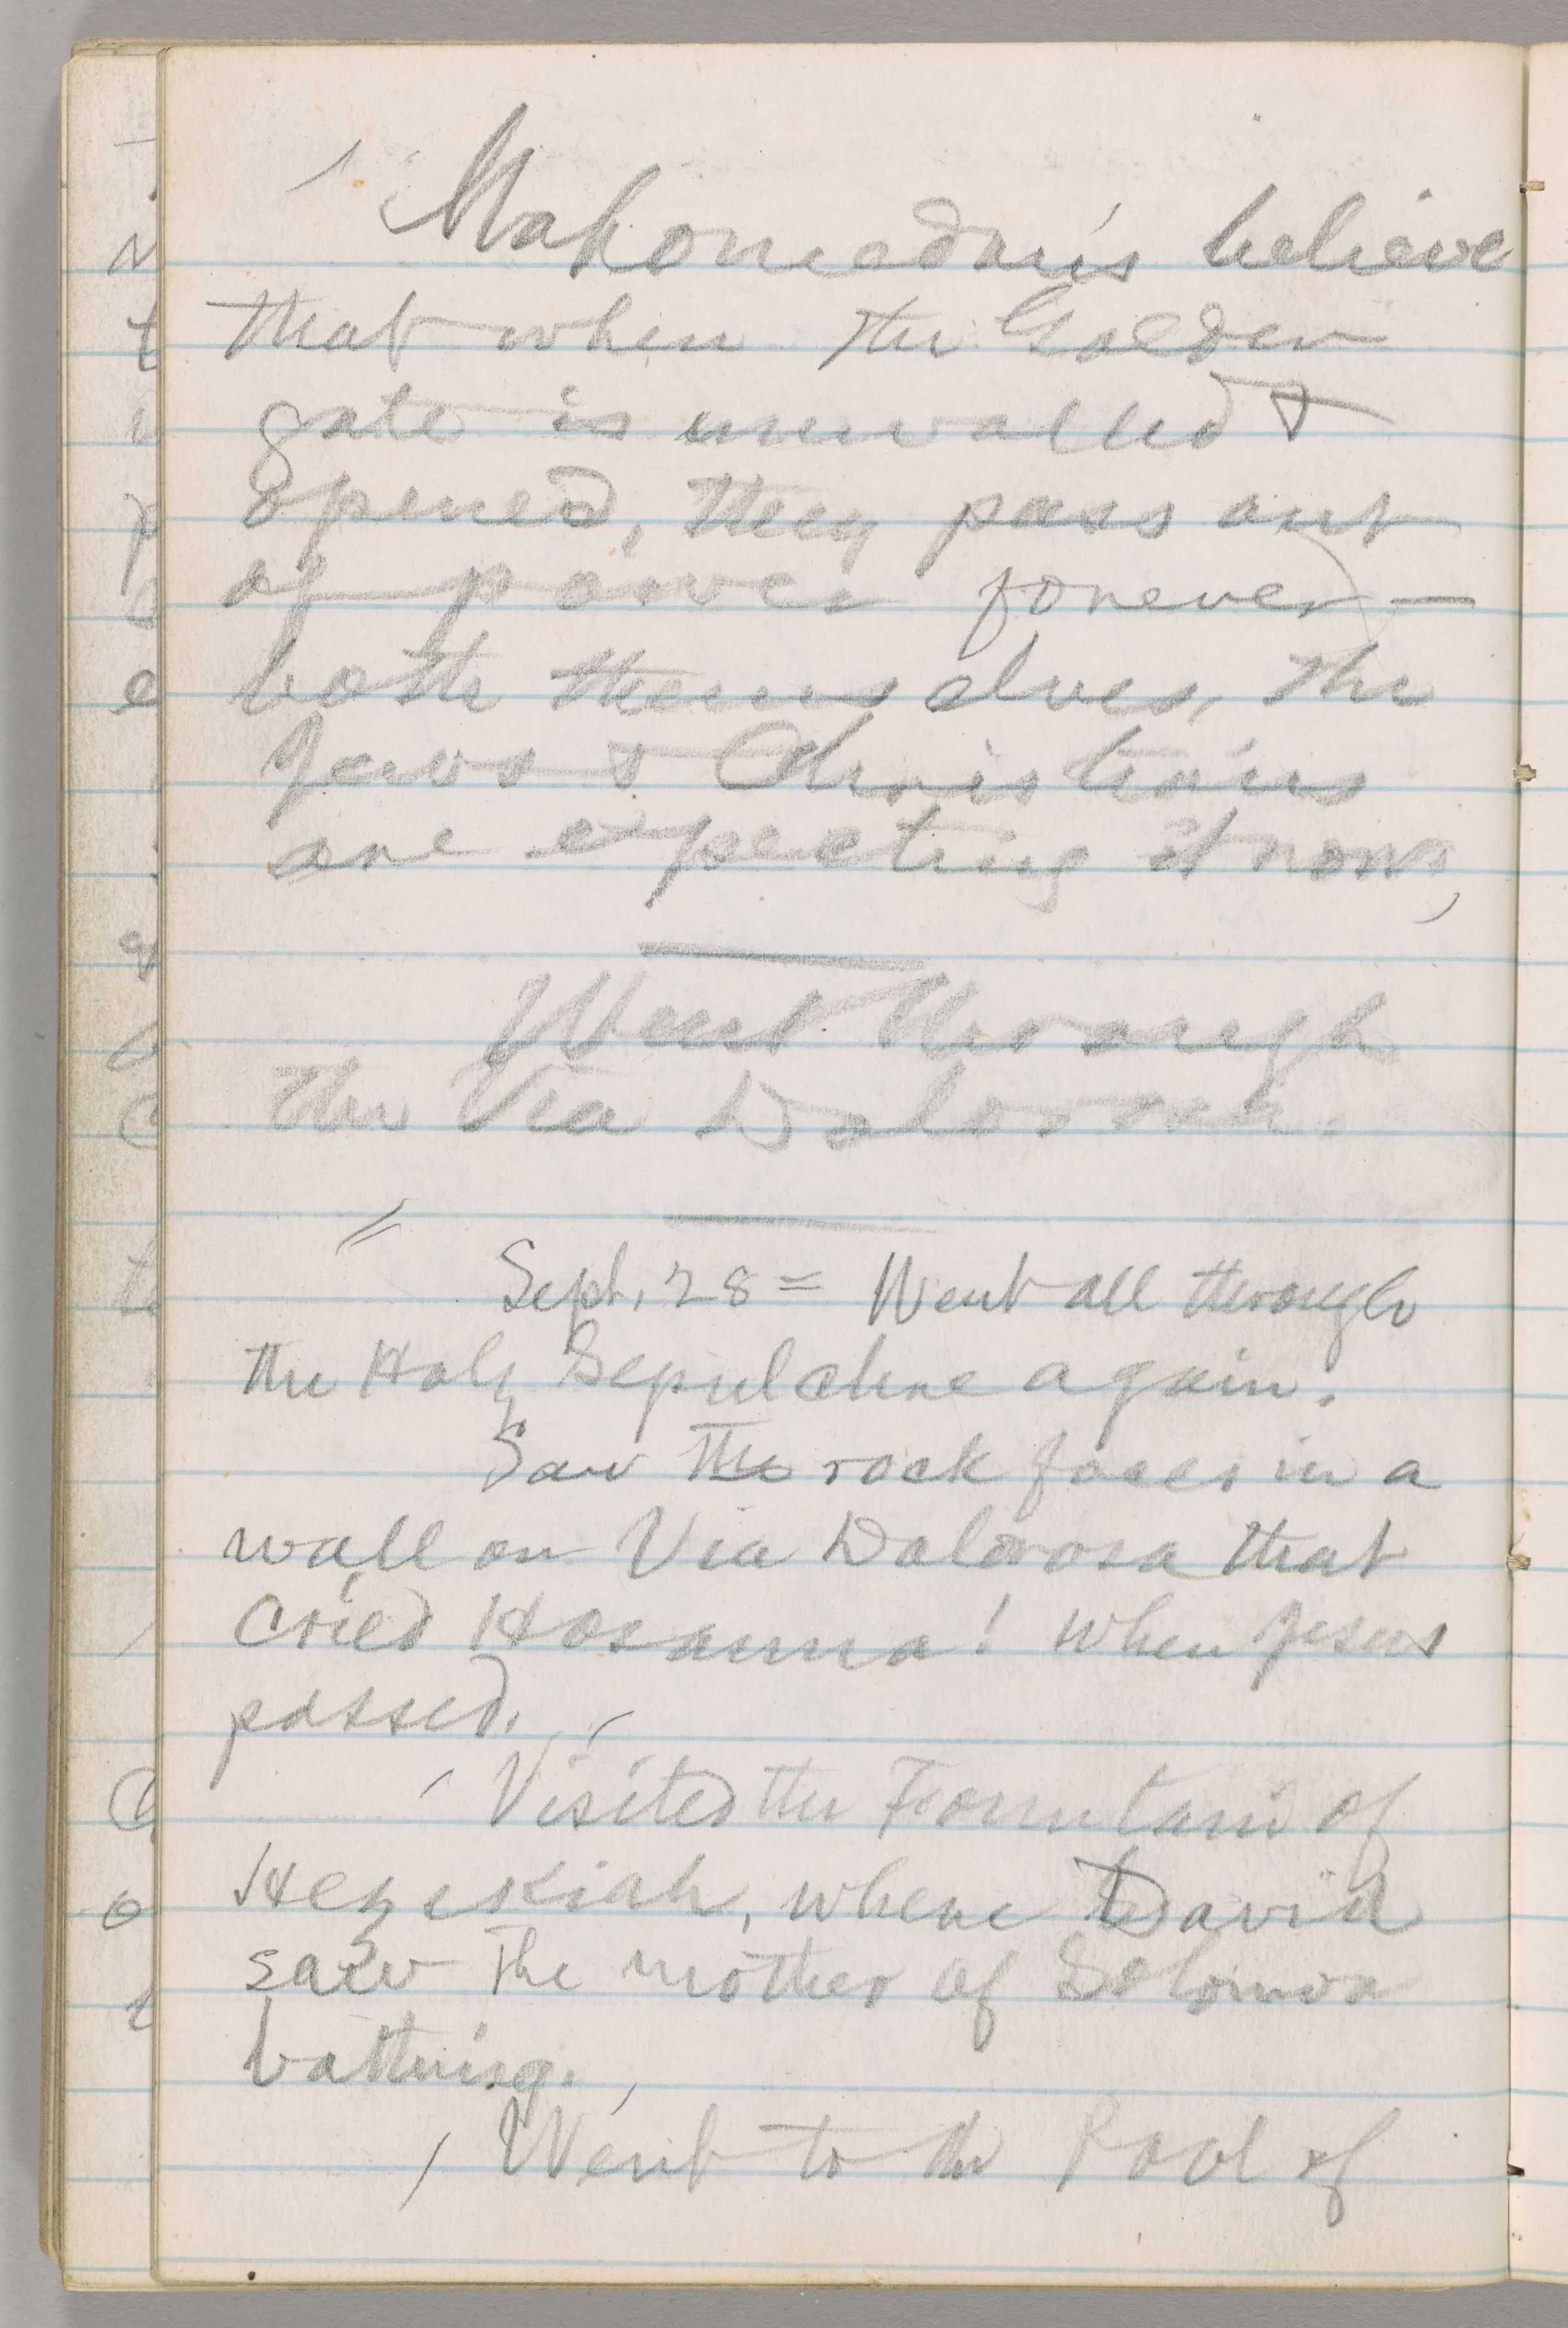 Mahomedans believe
that when the Golden
gate is unwalled &
opened, they pass out
of power forever—
both themselves, the
Jews & Christians
are expecting it now,
Went through
the Via Dolorosa.
Sept. 28 = Went all through
the Holy Sepulchre again.
Saw the rock faces in a
wall on Via Dolorosa that
cried Hosanna! when Jesus
passed.
Visited the Fountain of
Hezekiah, where David
saw the mother of Solomon
bathing.
Went to the Pool of